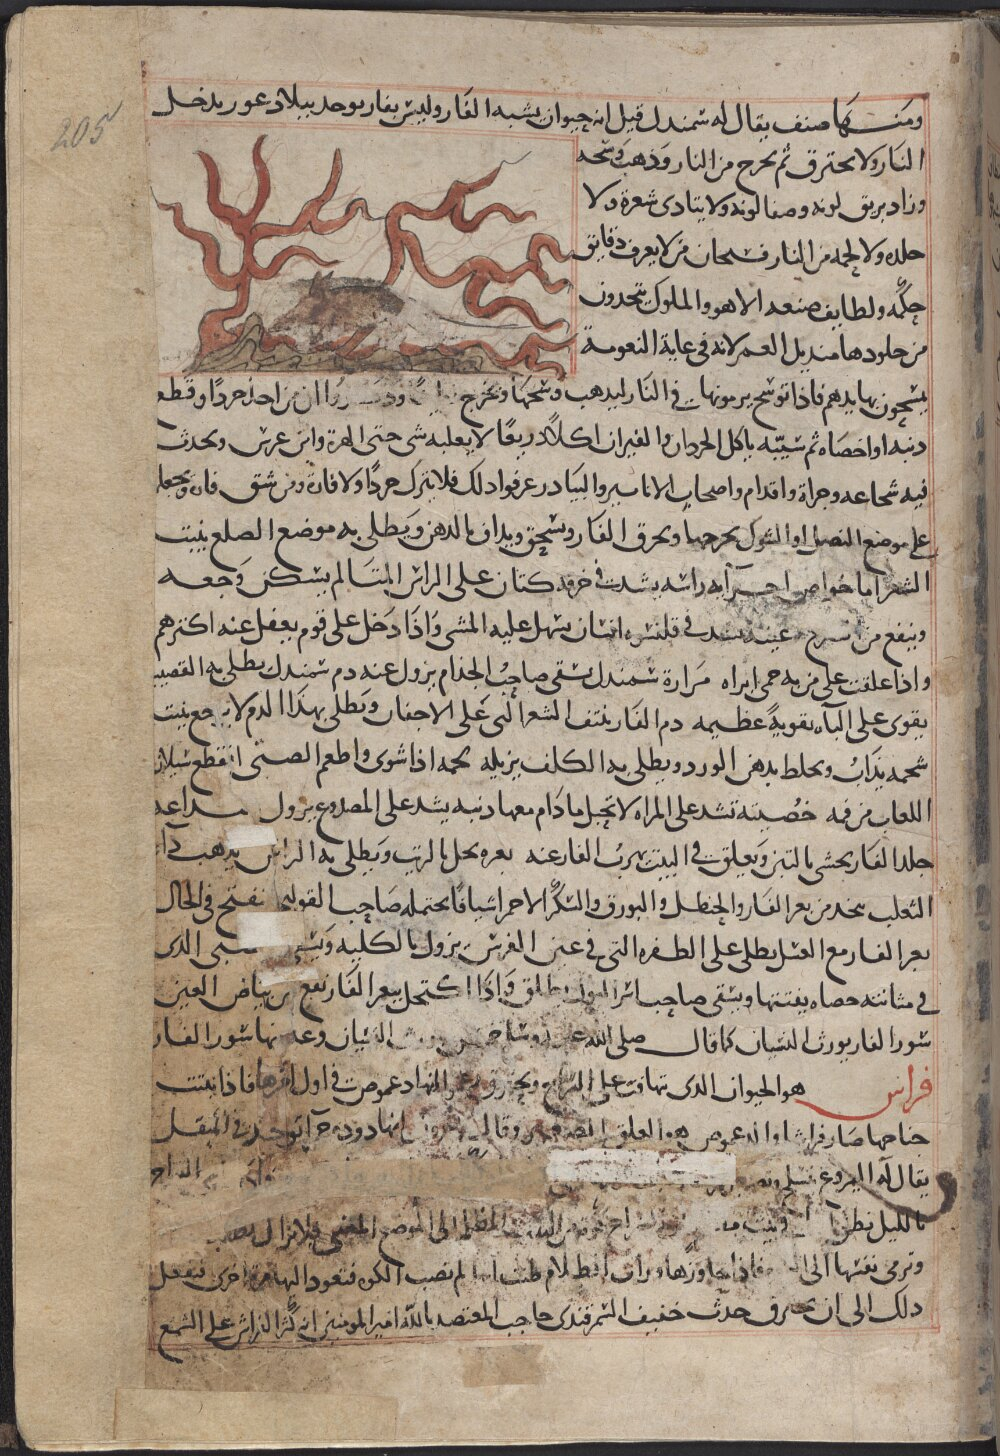 205
ومنها صنف يقال له سمندل قيل انه حيوان يشبه الفار وليس بفار يوجد ببلاد غور يدخل
النار ولا يحترق ثم يخرج من النار وذهب وسخه
وزاد بريق لونه وصفا لونه ولا يتادى شعره ولا
جلده ولا لحمه من النار فسبحان من لا يعرف دقايق
حكمه ولطايف صنعه الا هو والملوك يتخذون
من جلودها منديل الغمر لانه في غاية النعومة
يمسحون بها يدهم فاذا توسخ يرمونها في النار ليذهب وسخها وتخرج ان من اخذ جردا وقطع
دنبه او اخصاه ثم سيبه ياكل الجردان والفيران اكلا ذريعا لا يغلبه شى حتى الهرة وابن عرس ويحدث
فيه شجاعه وجراة واقدام واصحاب الانابير والبيادر عرفوا ذلك فلا يترك جردا ولا فارة ومن شق فارة ويجعلها
على موضع النصل او الشوك يخرجها ويحرق الفار ويسحق ويداف بالدهن ويطلى به موضع الصلع ينبت
الشعر اما خواص اجزآيه راسه يشد في خرقه كتان على الراس المتالم يسكن وجعه
وينفع من الصرع عينه تشد في قلنسوه انسان يسهل عليه المشى واذا دخل على قوم يغفل عنه اكثرهم
واذا علقت على من به حمى ابراه مرارة سمندل تسقى صاحب الجذام يزول عنه دم سمندل يطلى به القضيب
يقوى على الباه تقوية عظيمه دم الفار ينتف الشعر الدى على الاجفان ويطلى بهذا الدم لا يرجع ينبت
شحمه يذاب ويخلط بدهن الورد ويطلى به الكلف يزيله لحمه اذا شوى واطعم الصبى انقطع سيلان
اللعاب من فمه خصيته تشد على المراة لا تحبل ما دام معها دنبه يشد على المصدوع يزول صداعه
جلد الفار يحشى بالتبن ويعلق في البيت يهرب الفار عنه بعره يحل بالزيت ويطلى به الراس يذهب داء
الثعلب يتخذ من بعر الفار والحنظل والبورق والسكر الاحمر اشيافا يحتمله صاحب القولنج تفتح في الحال
بعر الفار مع العسل يطلى على الطفره التى في عين الفرس يزول بالكليه ويسقى الصبى الدى
في مثانته حصاه يفتتها ويسقى صاحب اسر البول يطلق واذا اكتحل ببعر الفار نفع من بياض العين
سور الفار يورث النسيان كما قال صلى الله عليه وسلم خمس يورث النسيان وعد منها سور الفار
فراش هو الحيوان الدى تهافت على السراج ويحترق زعموا انها دعموص في اول امرها فاذا نبتت
جناحها صار فراشا والدعموص هو العلق الصغير وقال اخرون انها دودة حمرآ توجد في البقل
يقال له اليسروع تسلخ وتصير
بالليل تظن انها في بيت مظلم السراج كوة من البيت المظلم الى الموضع المضى فلا يزال يطلب
وترمى نفسها الى النار فاذا جاوزها ورات الظلام ظنت انها لم تصب الكوه فتعود اليها مرة اخرى فتفعل
ذلك الى ان تحترق حدث خفيف السمرقندى حاجب المعتضد بالله امير المومنين انه كثر الفراش على الشمع